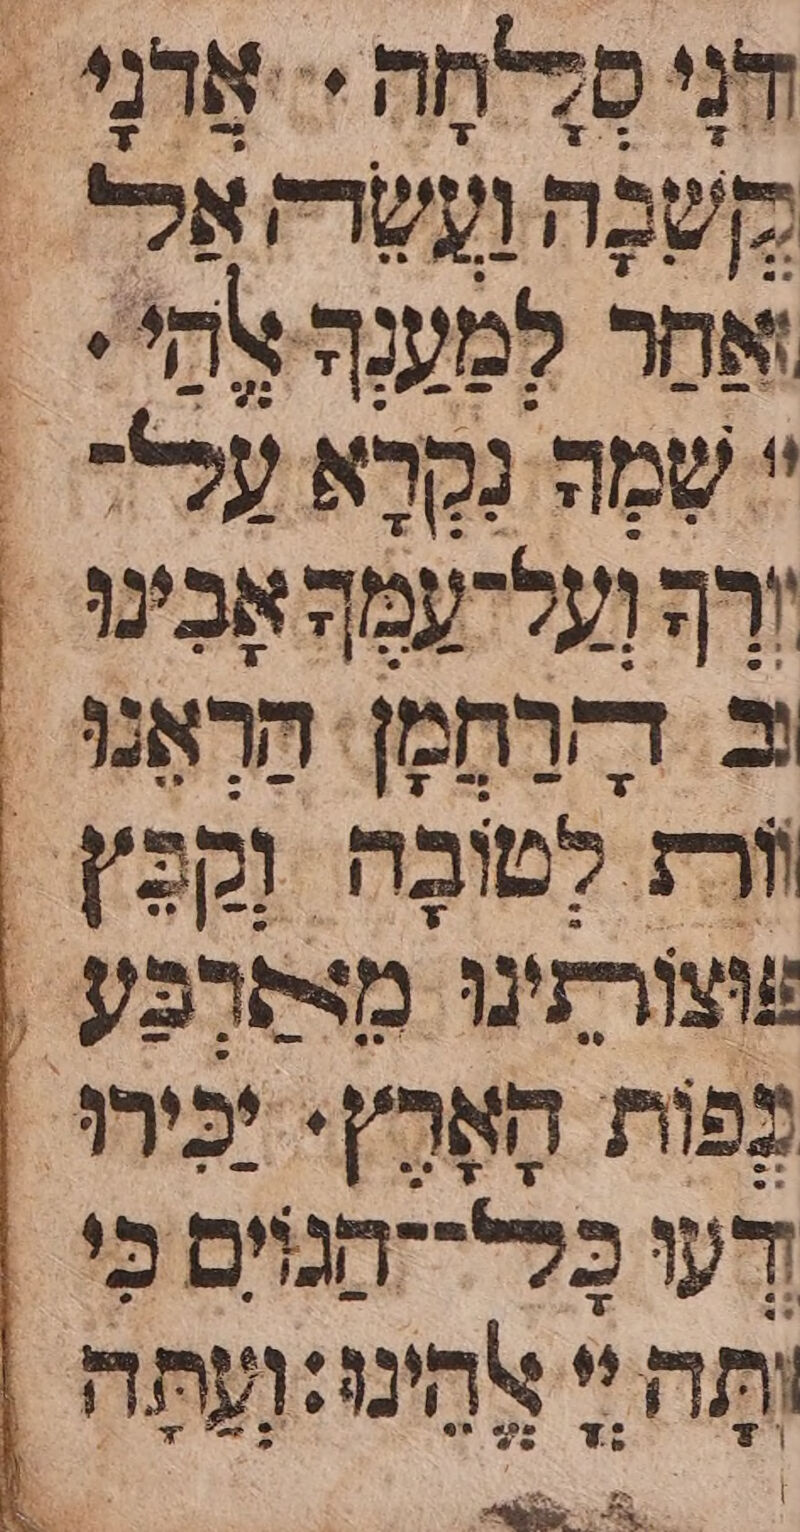 דֹנָי סְלָחָה · אֲדֹנָי
קֳשִׁבָה וַעֲשֵׂה אַל
אַחַר לְמַעַנְךָ אֱלֹהַי ·
שִׁמְךָ נִקְרָא עַל־
וְעַל־עַמֶּךָ אָבִינוּ
הָרַחֲמָן הַרְאֵנוּ
לְטוֹבָה וְקַבֵּץ
פוּצוֹתֵינוּ מֵאַרְבַּע
נְפוֹת הָאָרֶץ · יַכִּירוּ
דְעוּ כָּל־־הַגוֹיִם כִּי
תָּה יְיָ אֱלֹהֵינוּ : וְעַתָּה